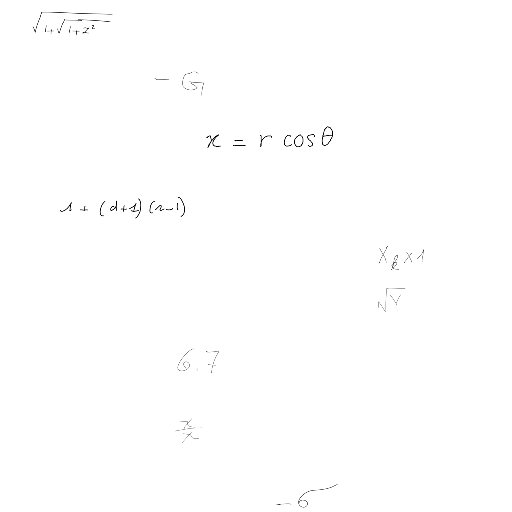 √(1+√(1+z²))
-G
x = r cos θ
1 + (d+1)(n-1)
X_k × 1
√V
6.7
x/x
-σ